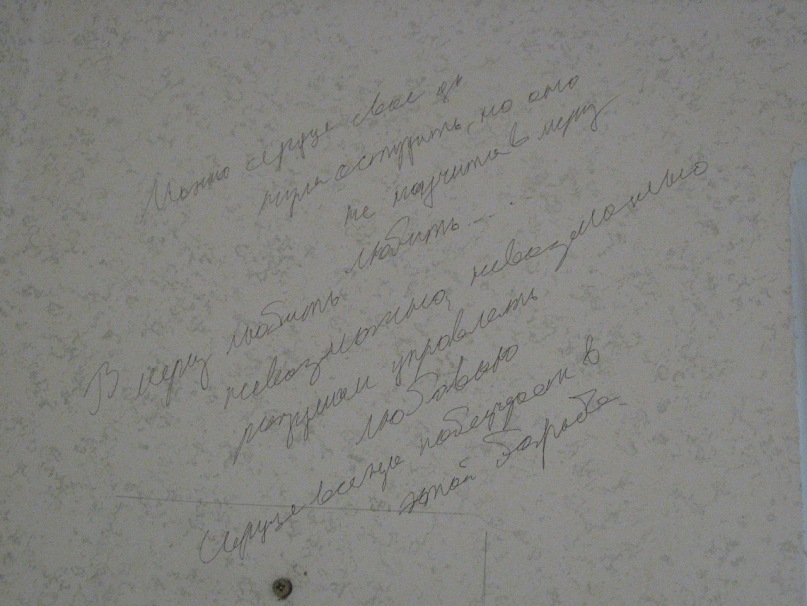 Можно сердце свое от
мира остудить, но оно
не научится в меру
любить...
В меру любить
невозможно, невозможно
разумом управлять
любовью
Сердце всегда победит в
этой борьбе.